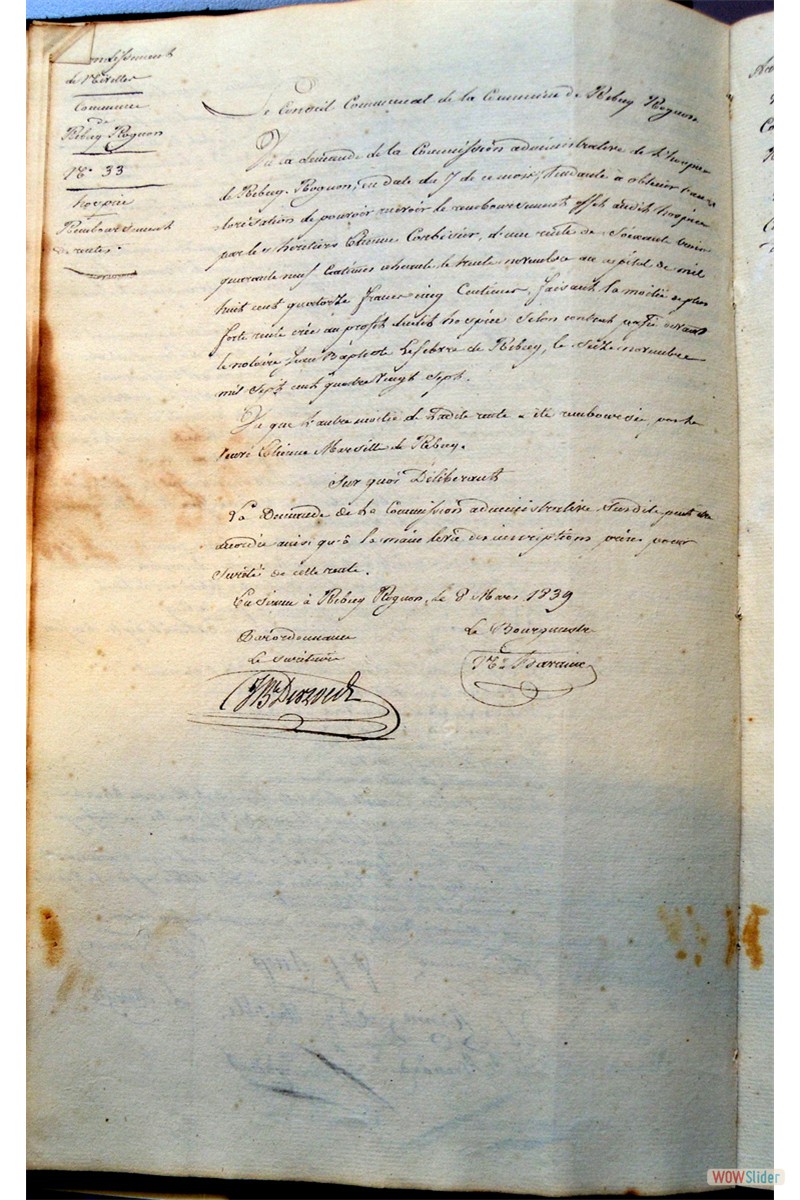 ondissement
de Nivelles
Commune
de
Rebecq Rognon
N.° 33
hospice
Remboursement
de rente.
Le Conseil Communal de la Commune de Rebecq Rognon
Vu la demande de la Commission administrative de l'hospice
de Rebecq-Rognon, en date du 7 de ce mois, tendante à obtenir l'au=
torisation de pouvoir recevoir le remboursement offert audit hospice
par les héritiers Etienne Corbisier, d'une rente de Soixante
quarante neuf Centimes échéante le trente novembre au capital de mil
huit cent quatorze francs cinq Centimes, faisant la moitié de plus
forte rente créée au profit dudit hospice selon contrat passé devant
le notaire Jean Baptiste Lefebvre de Rebecq, le Seize novembre
mil Sept cent quatre vingt Sept.
Vu que l'autre moitié de ladite rente a été remboursée, par le
Sieur Etienne Marsille de Rebecq.
Sur quoi Délibérant
La Demande de la Commission administrative Susdite peut être
accordée ainsi qu'à la main levée des inscriptions prises pour
Sureté de cette rente.
En Séance à Rebecq Rognon, le 8 Mars 1839
Par ordonnance
le Bourgmestre
le secrétaire